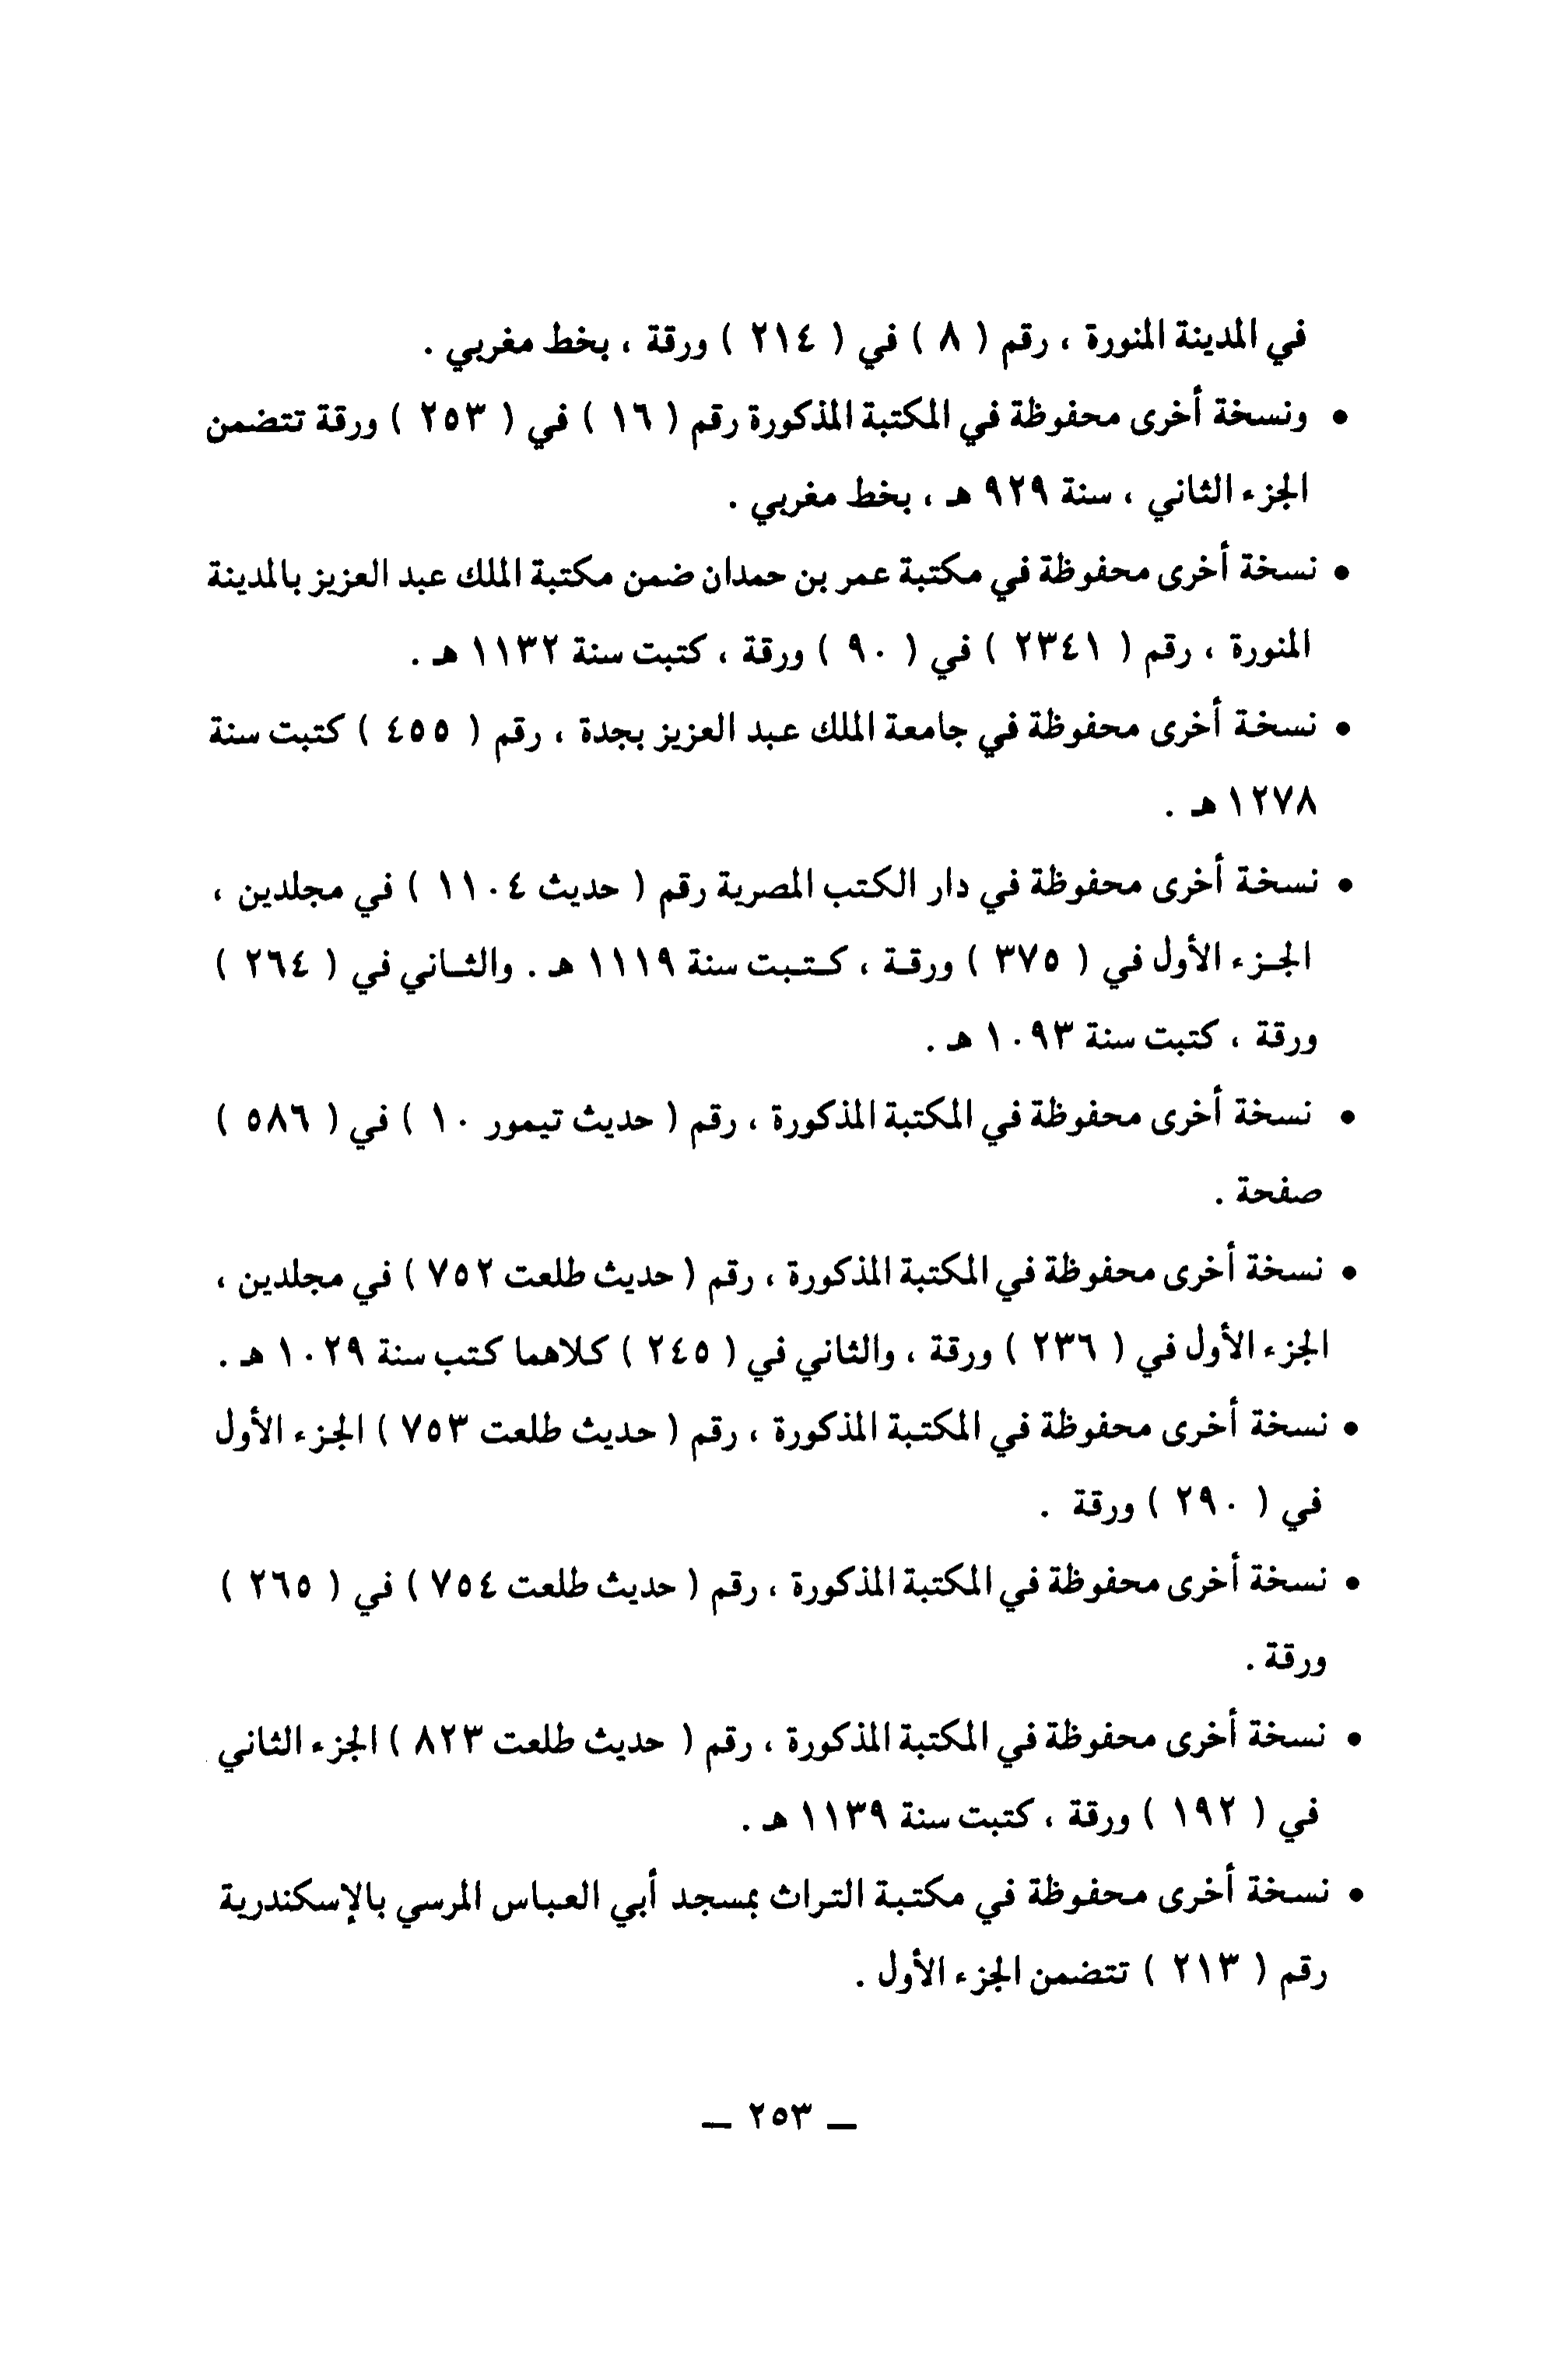 في المدينة المنورة ، رقم ( ٨ ) في ( ٢١٤ ) ورقة ، بخط مغربي .
• ونسخة أخرى محفوظة في المكتبة المذكورة رقم ( ١٦ ) في ( ٢٥٣ ) ورقة تتضمن
الجزء الثاني ، سنة ٩٢٩ هـ ، بخط مغربي .
• نسخة أخرى محفوظة في مكتبة عمر بن حمدان ضمن مكتبة الملك عبد العزيز بالمدينة
المنورة ، رقم ( ٢٣٤١ ) في ( ٩٠ ) ورقة ، كتبت سنة ١١٣٢ هـ .
• نسخة أخرى محفوظة في جامعة الملك عبد العزيز بجدة ، رقم ( ٤٥٥ ) كتبت سنة
١٢٧٨ هـ .
• نسخة أخرى محفوظة في دار الكتب المصرية رقم ( حديث ١١٠٤ ) في مجلدين ،
الجزء الأول في ( ٣٧٥ ) ورقة ، كتبت سنة ١١١٩ هـ . والثاني في ( ٢٦٤ )
ورقة ، كتبت سنة ١٠٩٣ هـ .
• نسخة أخرى محفوظة في المكتبة المذكورة ، رقم ( حديث تيمور ١٠ ) في ( ٥٨٦ )
صفحة .
• نسخة أخرى محفوظة في المكتبة المذكورة ، رقم ( حديث طلعت ٧٥٢ ) في مجلدين ،
الجزء الأول في ( ٢٣٦ ) ورقة ، والثاني في ( ٢٤٥ ) كلاهما كتب سنة ١٠٢٩ هـ .
• نسخة أخرى محفوظة في المكتبة المذكورة ، رقم ( حديث طلعت ٧٥٣ ) الجزء الأول
في ( ٢٩٠ ) ورقة .
• نسخة أخرى محفوظة في المكتبة المذكورة ، رقم ( حديث طلعت ٧٥٤ ) في ( ٢٦٥ )
ورقة .
• نسخة أخرى محفوظة في المكتبة المذكورة ، رقم ( حديث طلعت ٨٢٣ ) الجزء الثاني
في ( ١٩٢ ) ورقة ، كتبت سنة ١١٣٩ هـ .
• نسخة أخرى محفوظة في مكتبة التراث بمسجد أبي العباس المرسي بالإسكندرية
رقم ( ٢١٣ ) تتضمن الجزء الأول .
– ٢٥٣ –